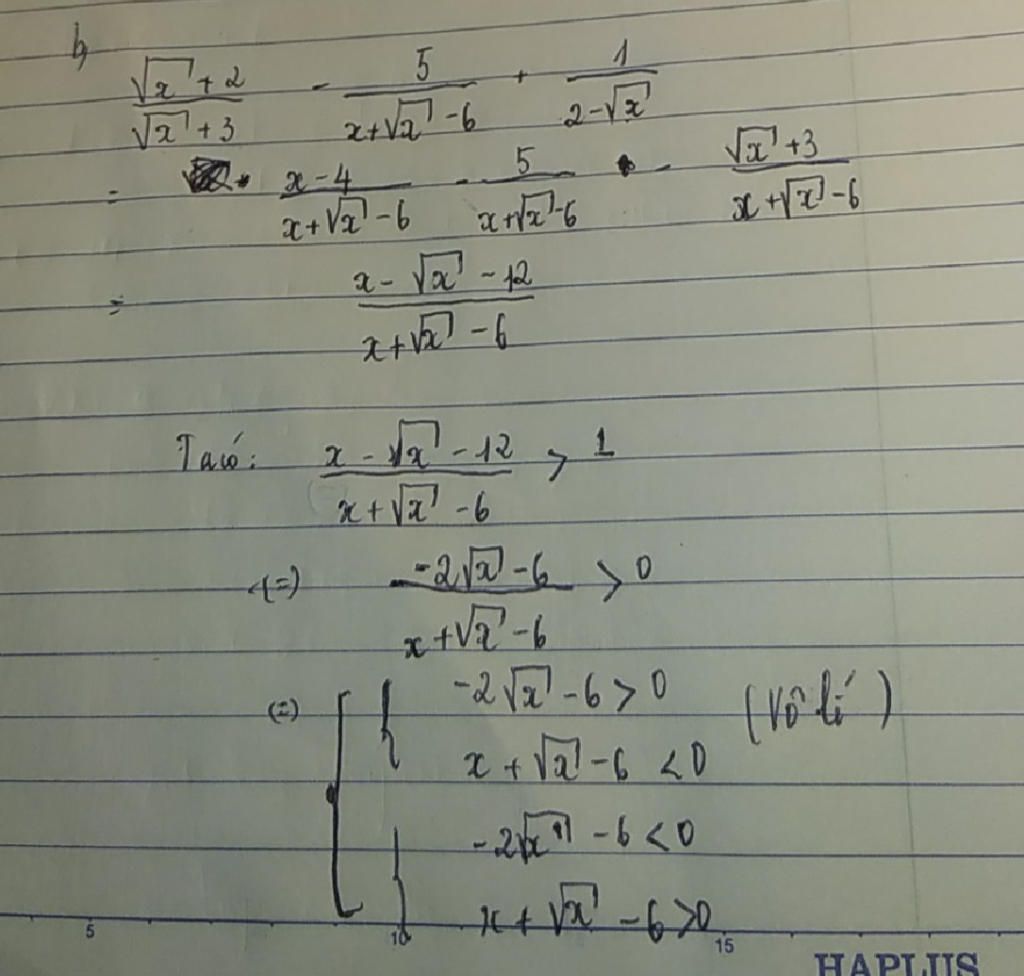 b,
\frac{\sqrt{x}+2}{\sqrt{x}+3} - \frac{5}{x+\sqrt{x}-6} + \frac{1}{2-\sqrt{x}}
= \frac{x-4}{x+\sqrt{x}-6} - \frac{5}{x+\sqrt{x}-6} - \frac{\sqrt{x}+3}{x+\sqrt{x}-6}
= \frac{x-\sqrt{x}-12}{x+\sqrt{x}-6}
Ta có: \frac{x-\sqrt{x}-12}{x+\sqrt{x}-6} > 1
(=) \frac{-2\sqrt{x}-6}{x+\sqrt{x}-6} > 0
(=) [ { -2\sqrt{x}-6 > 0 (Vô lí)
x+\sqrt{x}-6 < 0
{ -2\sqrt{x}-6 < 0
x+\sqrt{x}-6 > 0
5 10 15
HAPLUS